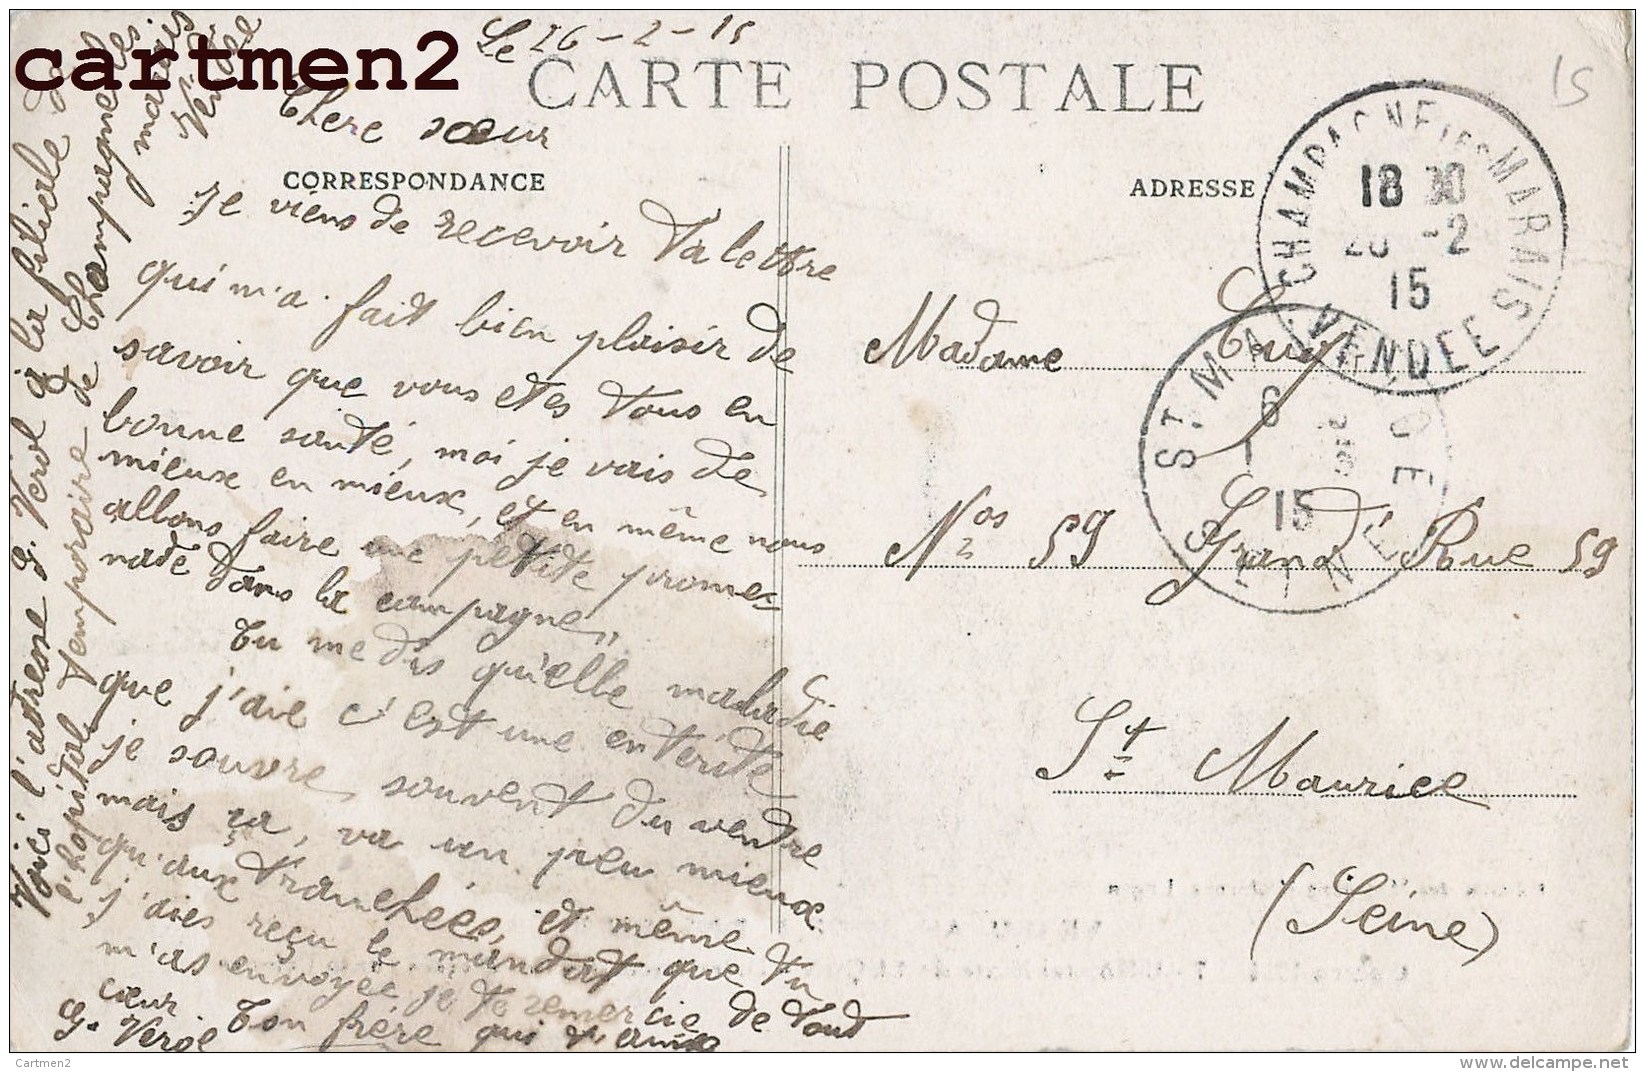 cartmen2
Le 26-2-15
CARTE POSTALE
15
Chere sœur
CORRESPONDANCE
je viens de recevoir ta lettre
qui m'a fait bien plaisir de
savoir que vous etes tous en
bonne santé, moi je vais de
mieux en mieux, et en même nous
allons faire une petite prome-
nade dans la campagne,,
tu me dis qu'elle maladie
que j'aie c'est une entérite
je souvre souvent du ventre
mais ça, va un peu mieux
qu'aux tranchées, et même
j'aies reçu le mandat que tu
m'as envoyée je te remercie de tout
cœur ton frère qui t'aime
G. Verol
Voici l'adresse G. Verol à la filiale de
l'hopital temporaire de Champagne les
marais
Vendée
ADRESSE
CHAMPAGNE les MARAIS
18 30
26 -2
15
VENDEE
ST MAURICE
6
15
SEINE
Madame Cuy
Nos 59 Grand Rue 59
St Maurice
(Seine)
Cartmen2
www.delcampe.net